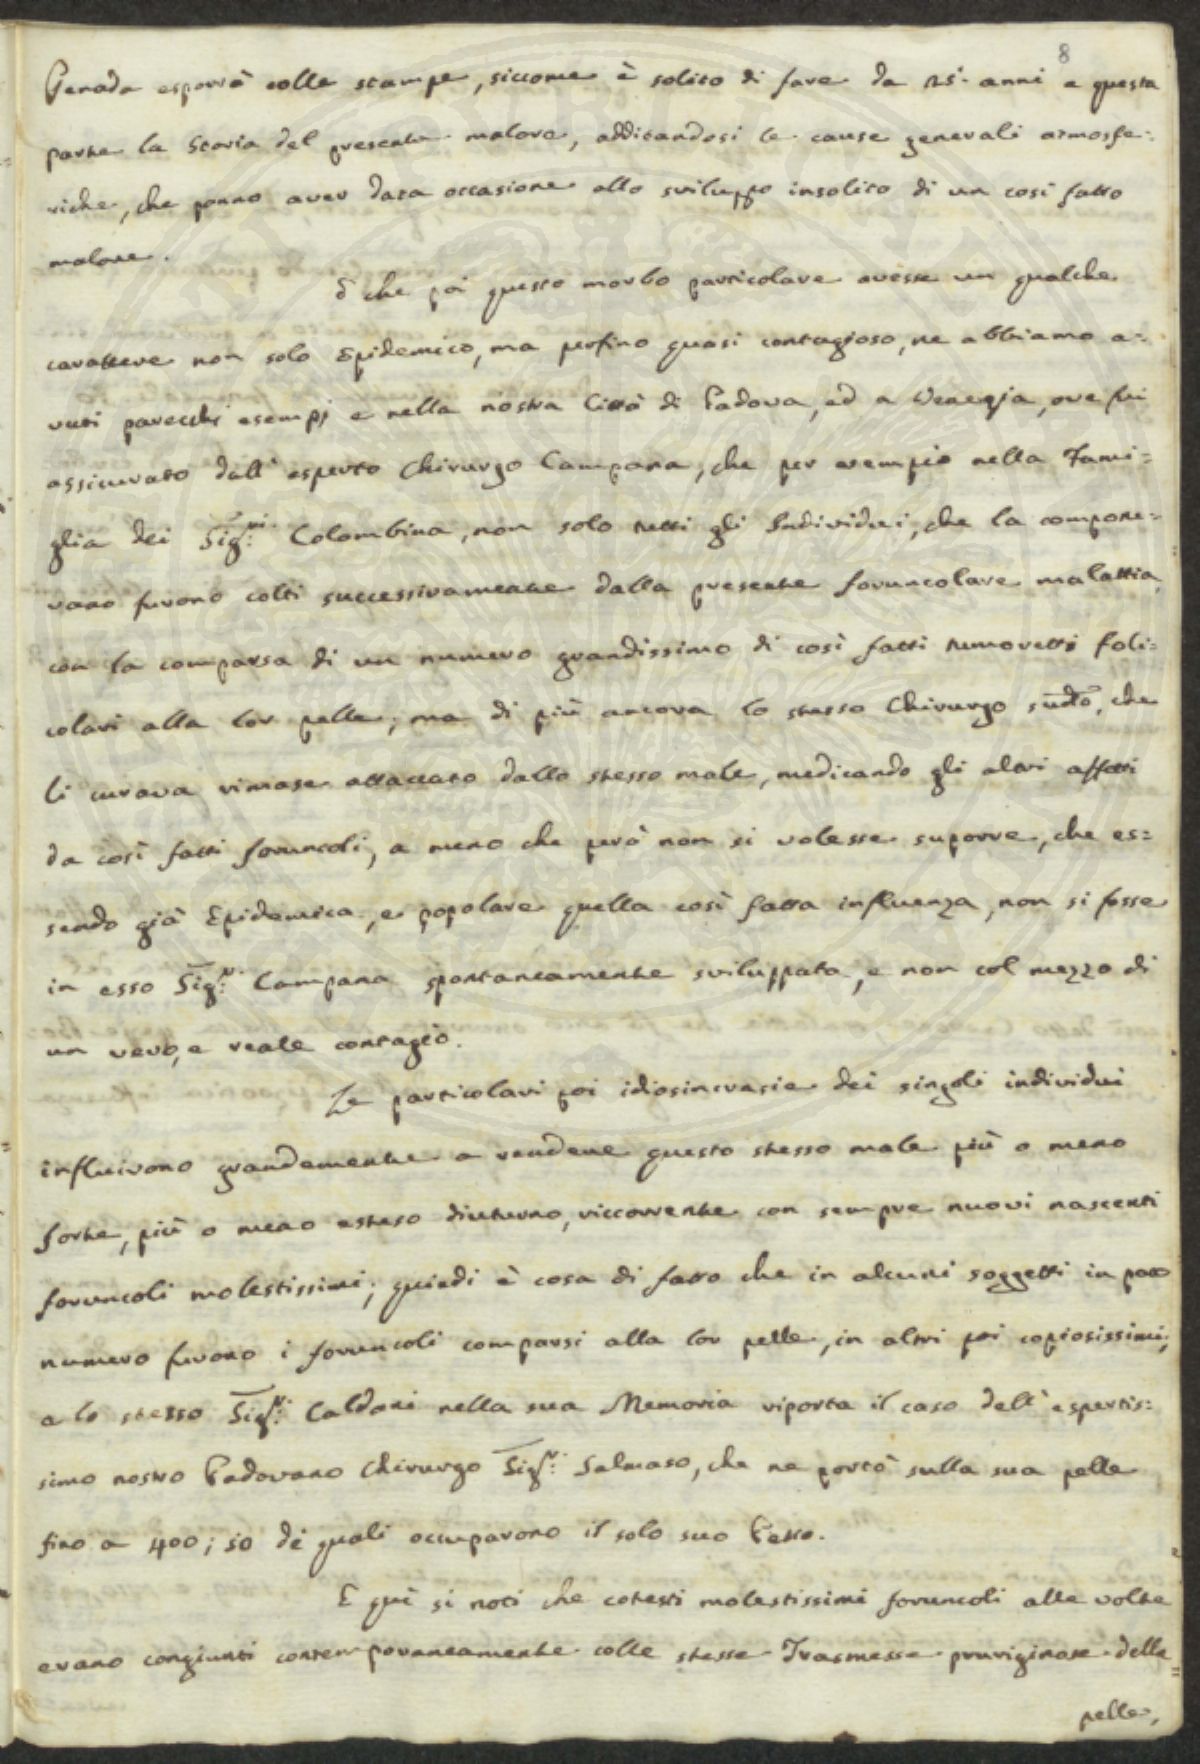 8
Penada esporrà colle stampe, siccome è solito di fare da 25. anni a questa
parte la Storia del presente malore, additandosi le cause generali atmosfe-
riche, che ponno aver data occasione allo sviluppo insolito di un così fatto
malore.
E che poi questo morbo particolare avesse un qualche
carattere non solo Epidemico, ma perfino quasi contagioso, ne abbiamo a-
vuti parecchi esempj e nella nostra Città di Padova, ed a Venezia, ove fui
assicurato dall' esperto Chirurgo Campana, che per esempio nella Fami=
glia dei Sig.ri Colombina, non solo tutti gli Individui, che la compone=
vano furono colti successivamente dalla presente foruncolare malattia,
con la comparsa di un numero grandissimo di così fatti tumoretti foli=
colari alla lor pelle; ma di più ancora lo stesso Chirurgo sudto, che
li curava rimase attaccato dallo stesso male, medicando gli altri affetti
da così fatti foruncoli, a meno che però non si volesse suporre, che es=
sendo già Epidemica, e popolare quella così fatta influenza, non si fosse
in esso Sig.r Campana spontaneamente sviluppata, e non col mezzo di
un vero, e reale contagio.
Le particolari poi idiosincrasie dei singoli individui
influirono grandemente a rendere questo stesso male più o meno
forte, più o meno esteso diuturno, riccorrente con sempre nuovi nascenti
foruncoli molestissimi; quindi è cosa di fatto che in alcuni soggetti in poco
numero furono i foruncoli comparsi alla lor pelle, in altri poi copiosissimi;
e lo stesso Sig.r Caldani nella sua Memoria riporta il caso dell' espertis=
simo nostro Padovano Chirurgo Sig.r Salmaso, che ne portò sulla sua pelle
fino a 400; 50 de quali occupavono il solo suo Petto.
E quì si noti che cotesti molestissimi foruncoli alle volte
erano congiunti contemporaneamente colle stesse pruriginose della
pelle,